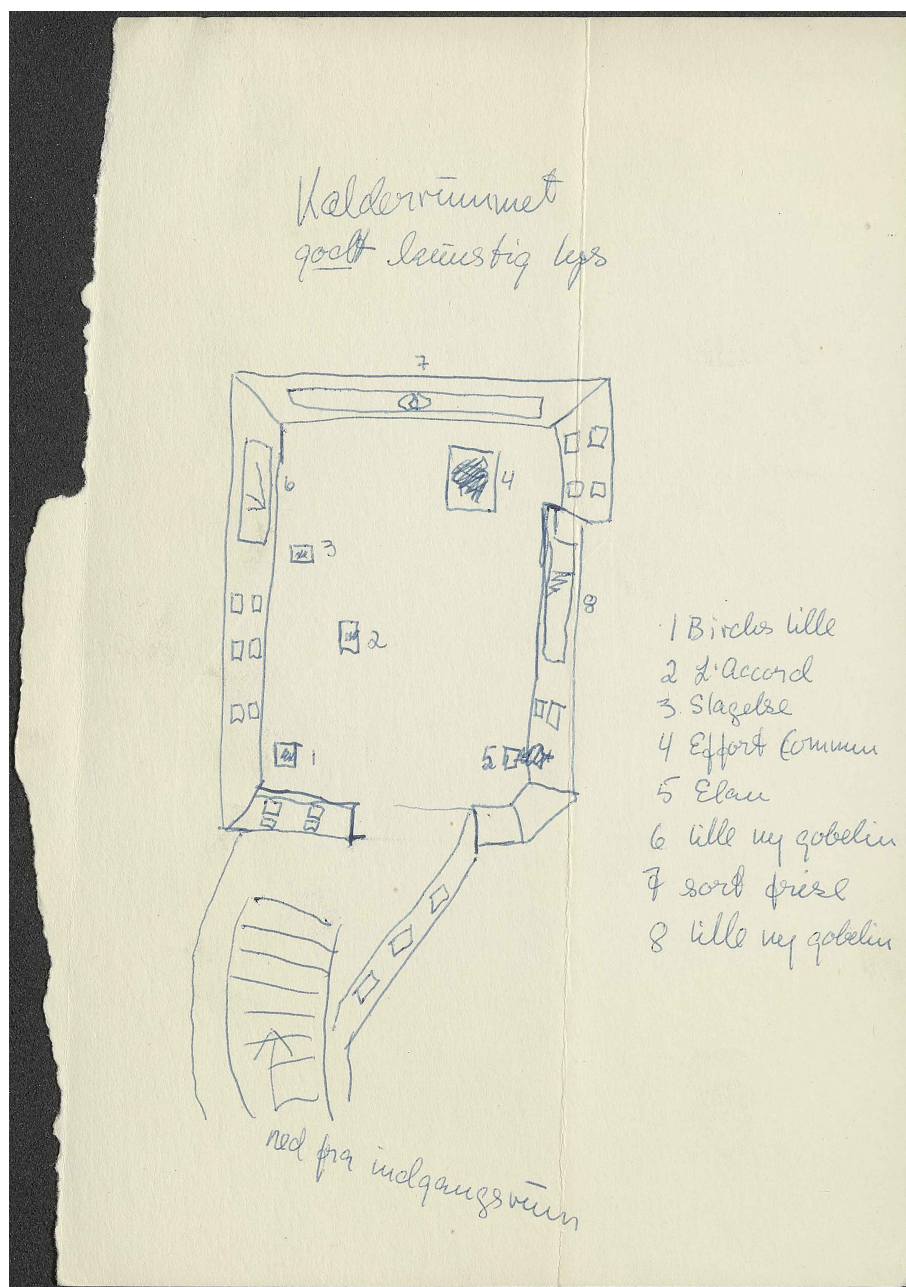 Kælderrummet
godt kunstig lys
7
6
4
3
8
2
1
5
1 Birchs lille
2 L'Accord
3. Slagelse
4 Effort Commun
5 Elan
6 lille ny gobelin
7 sort frise
8 lille ny gobelin
ned fra indgangsrum